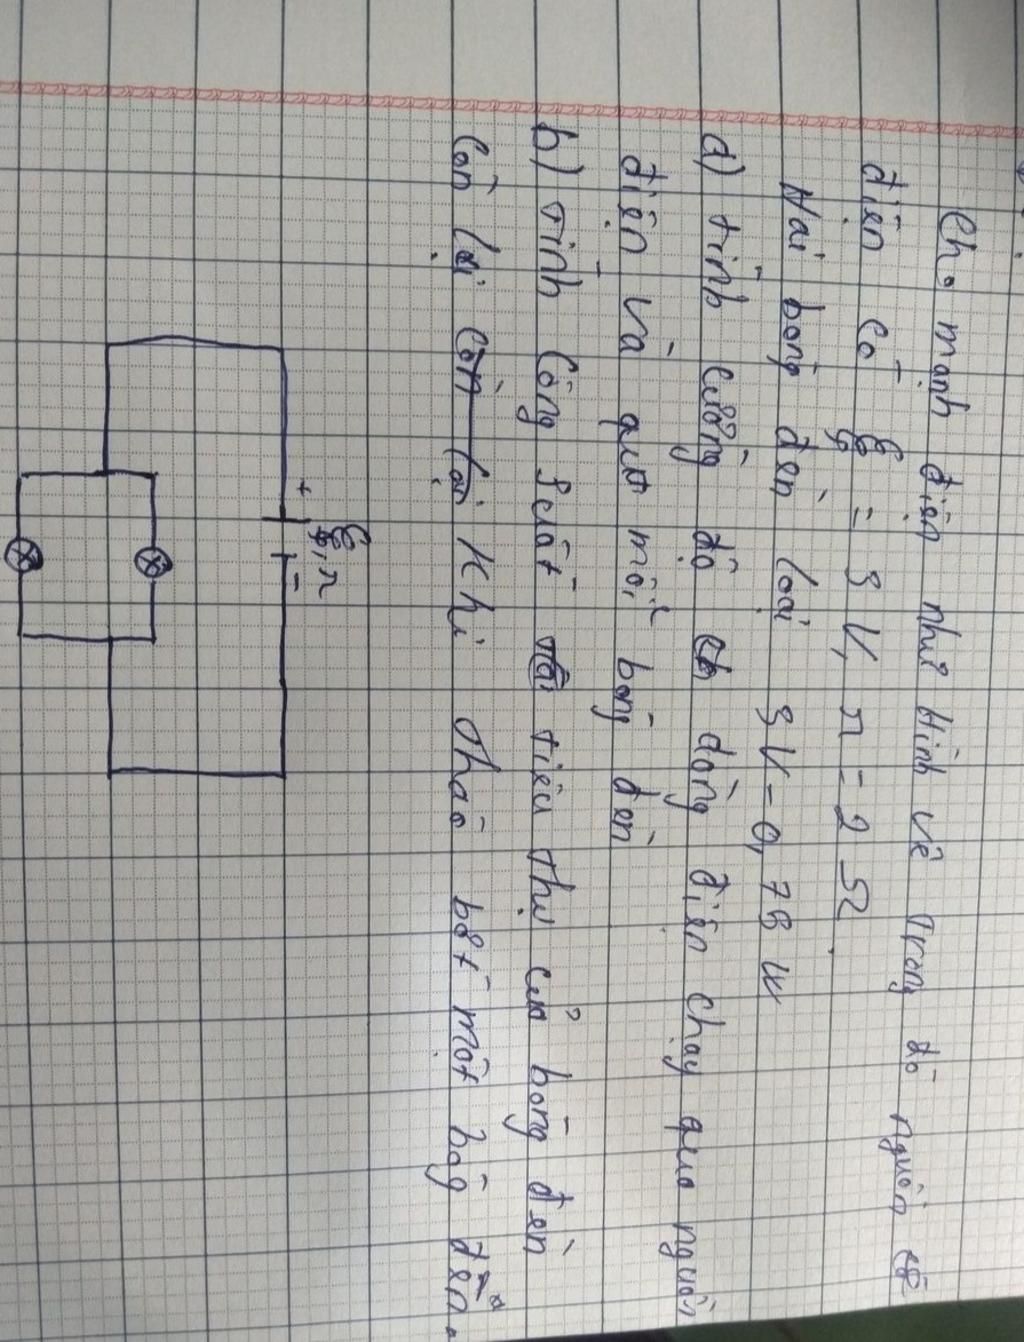 Cho mạnh điện như Hình vẽ Trong đó nguồn
điện có ξ = 3 V, r = 2 Ω.
Hai bóng đèn loại 3V - 0,75 W
a) tính cường độ dòng điện chạy qua nguồn
điện và qua mỗi bóng đèn
b) Tính Công suất tiêu thụ của bóng đèn
Còn lại khi tháo bớt một bóng đèn.
+ ξ, r -